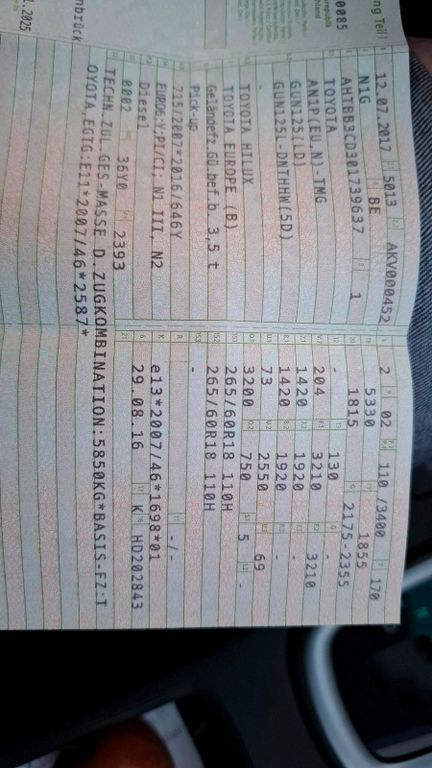 ng Teil I
0085
12.07.2017 5013 AKV000452
N1G BE
AHTBB3CD301739637 1
TOYOTA
AN1P(EU,N)-TMG
GUN125(LD)
GUN125L-DNTHHW(5D)
-
TOYOTA HILUX
TOYOTA EUROPE (B)
Geländefz.Gü.bef.b 3,5 t
Pick-up
715/2007*2016/646Y
EURO6;Y;PI/CI; N1 III, N2
Diesel
0002 36Y0 2393
TECHN.ZUL.GES-MASSE D.ZUGKOMBINATION:5850KG*BASIS-FZ:T
OYOTA,EGTG:E11*2007/46*2587*
2 02 110 /3400 170
5330 1855
1815 2175-2355
- 130 -
204 3210 3210
1420 1920 -
1420 1920 -
73 2550 69
3200 750 5 -
265/60R18 110H
265/60R18 110H
-
- / -
e13*2007/46*1698*01
29.08.16 K HD202843
nbrück
.2025